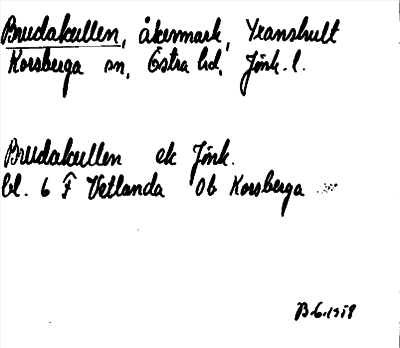 Brudakullen, åkermark, Transhult
Korsberga sn, Östra hd, Jönk. l.
Brudakullen ek Jönk.
bl. 6 F Vetlanda Ob Korsberga